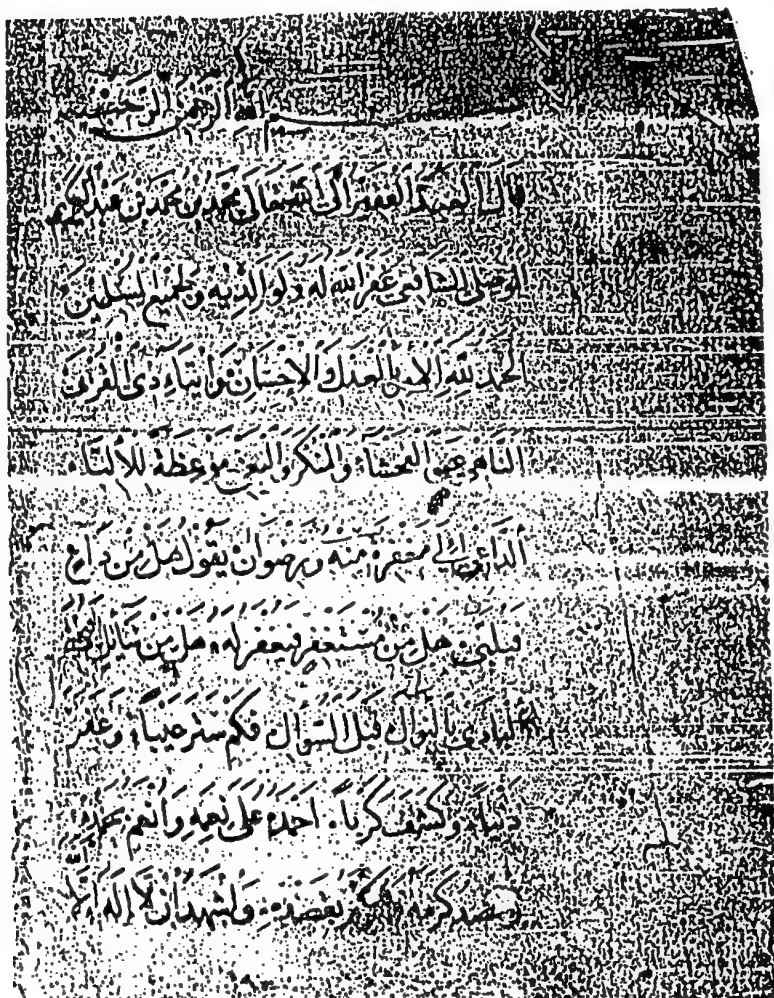 بسم الله الرحمن الرحيم
قال العبد الفقير الى الله تعالى محمد بن محمد بن عبد الكريم
الموصلي الشافعي غفر الله له ولوالديه ولجميع المسلمين
الحمد لله الآمر بالعدل والإحسان وإيتاء ذي القربى
الناهي عن الفحشاء والمنكر والبغي موعظة للألباء
الداعي إلى مغفرة منه ورضوان يقول هل من داع
فيلبى هل من مستغفر فيغفر له هل من سائل
المبادي بالنوال قبل السؤال فكم ستر عيباً وغفر
ذنباً وكشف كرباً أحمده على نعمه
كرمه ونشهد أن لا إله إلا